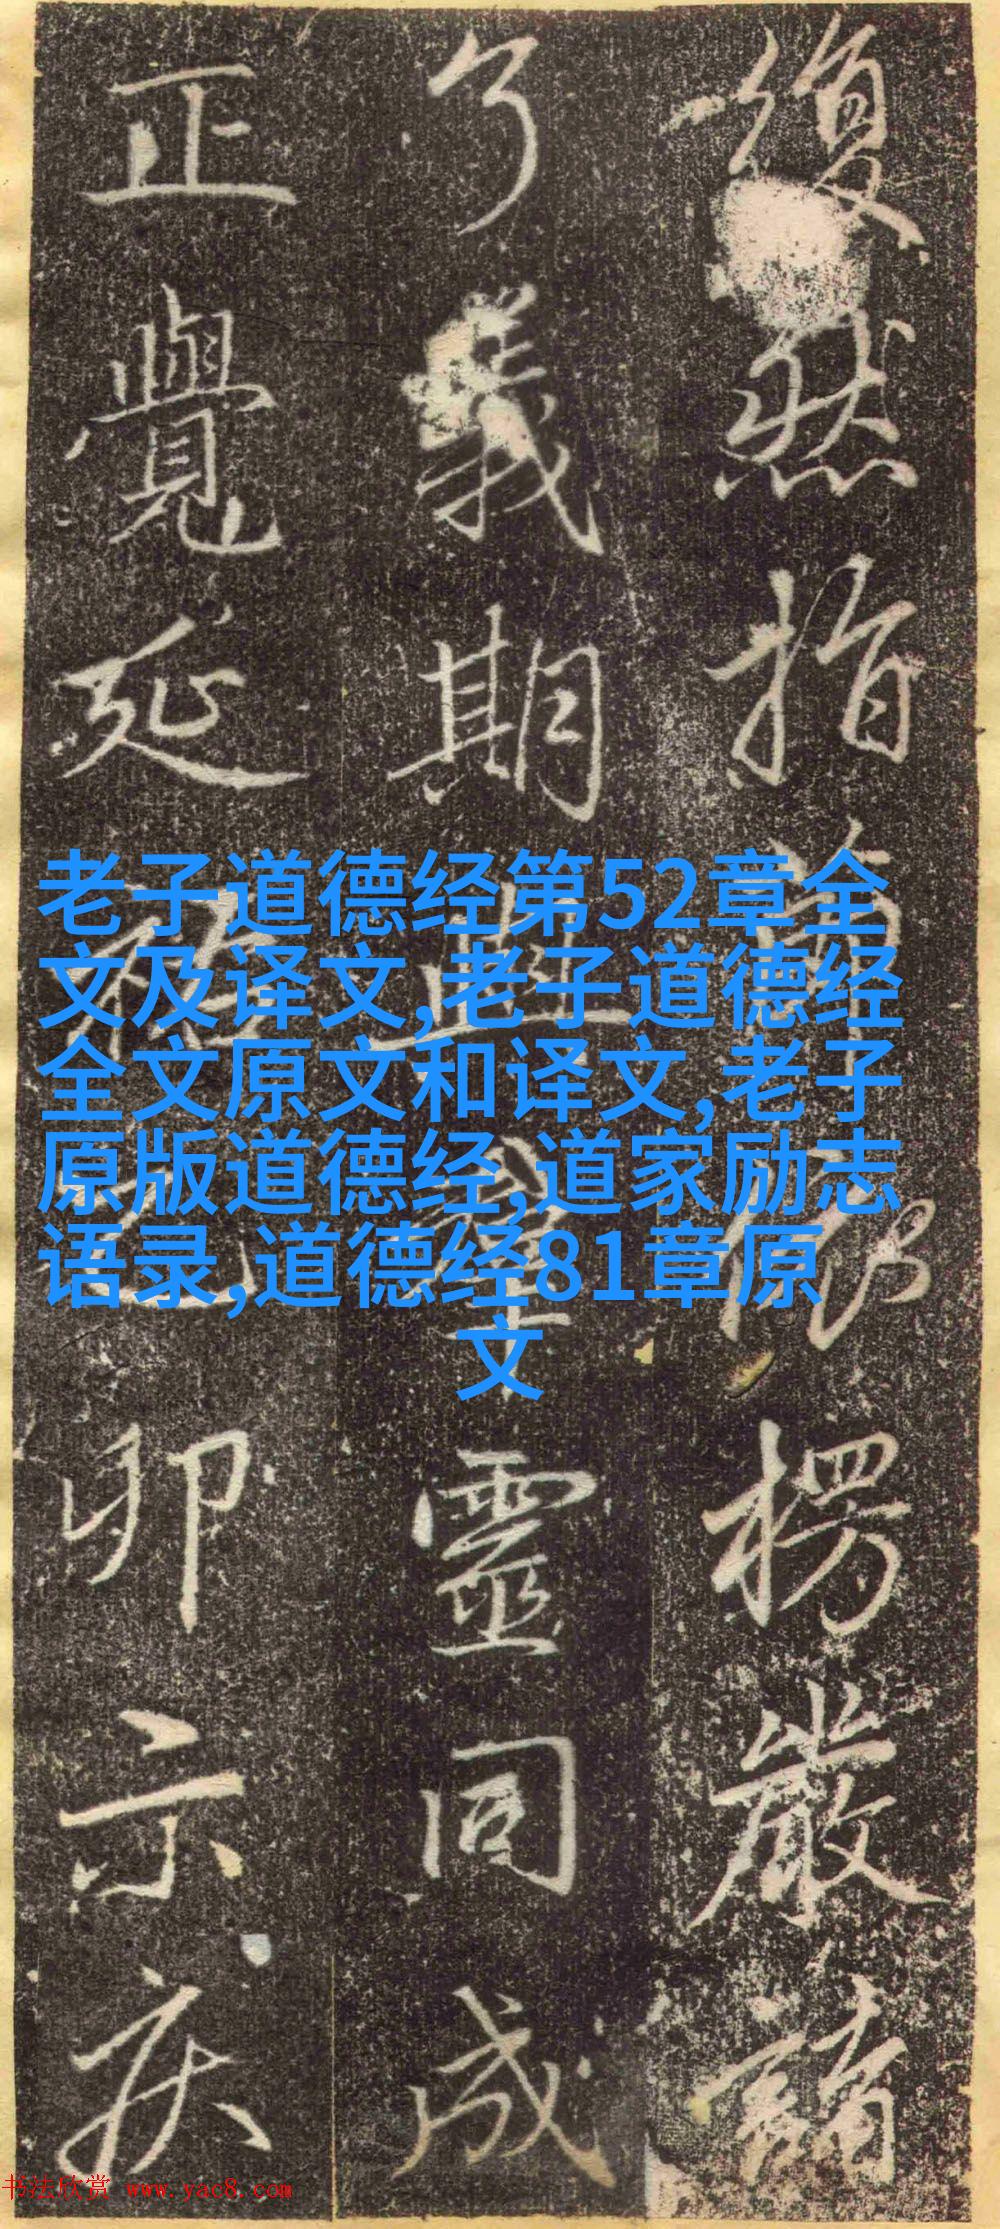 復然指楞嚴
了義期與羣靈同成
正覺延祐乙卯示疾
老子道德经第52章全
文及译文,老子道德经
全文原文和译文,老子
原版道德经,道家励志
语录,道德经81章原
文
书法欣赏 www.yac8.com